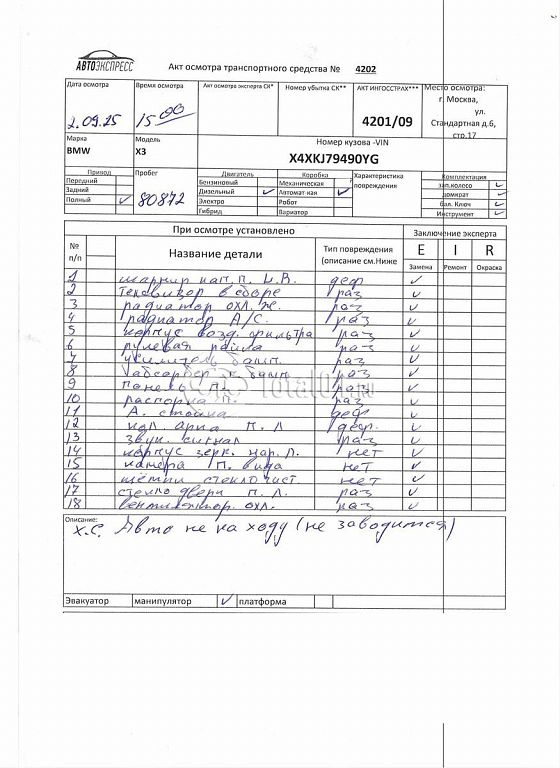 АВТОЭКСПРЕСС
Акт осмотра транспортного средства № 4202
Дата осмотра Время осмотра Акт осмотра эксперта СК* Номер убытка СК** АКТ ИНГОССТРАХ*** Место осмотра:
2.09.25 15 00 4201/09 г. Москва,
ул.
Стандартная д.6,
стр.17
Марка Модель Номер кузова -VIN
BMW X3 X4XKJ79490YG
Привод Пробег Двигатель Коробка Характеристика повреждения Комплектация
Передний Бензиновый Механическая зап.колесо
Задний Дизельный Автомат-кая домкрат
Полный 80872 Электро Робот бал. Ключ
Гибрид Вариатор Инструмент
При осмотре установлено Заключение эксперта
№ п/п Название детали Тип повреждения (описание см.Ниже E I R
Замена Ремонт Окраска
1 шарнир кап. П. L.R. деф
2 телевизор в сборе раз
3 радиатор охл. ж. раз
4 радиатор А/С. раз
5 корпус возд. фильтра раз
6 рулевая рейка раз
7 усилитель бамп. раз
8 абсорбер бамп. раз
9 панель раз
10 распорка п. раз
11 А. стойка деф
12 арка П. Л деф.
13 звук. сигнал раз
14 корпус зерк. нар. Л. нет
15 камера П. вида нет
16 щётки стеклочист. нет
17 стекло двери П. Л. раз
18 вентилятор. охл. раз
Total01.ru
Описание:
Х.С. Авто не на ходу (не заводится)
Эвакуатор манипулятор платформа